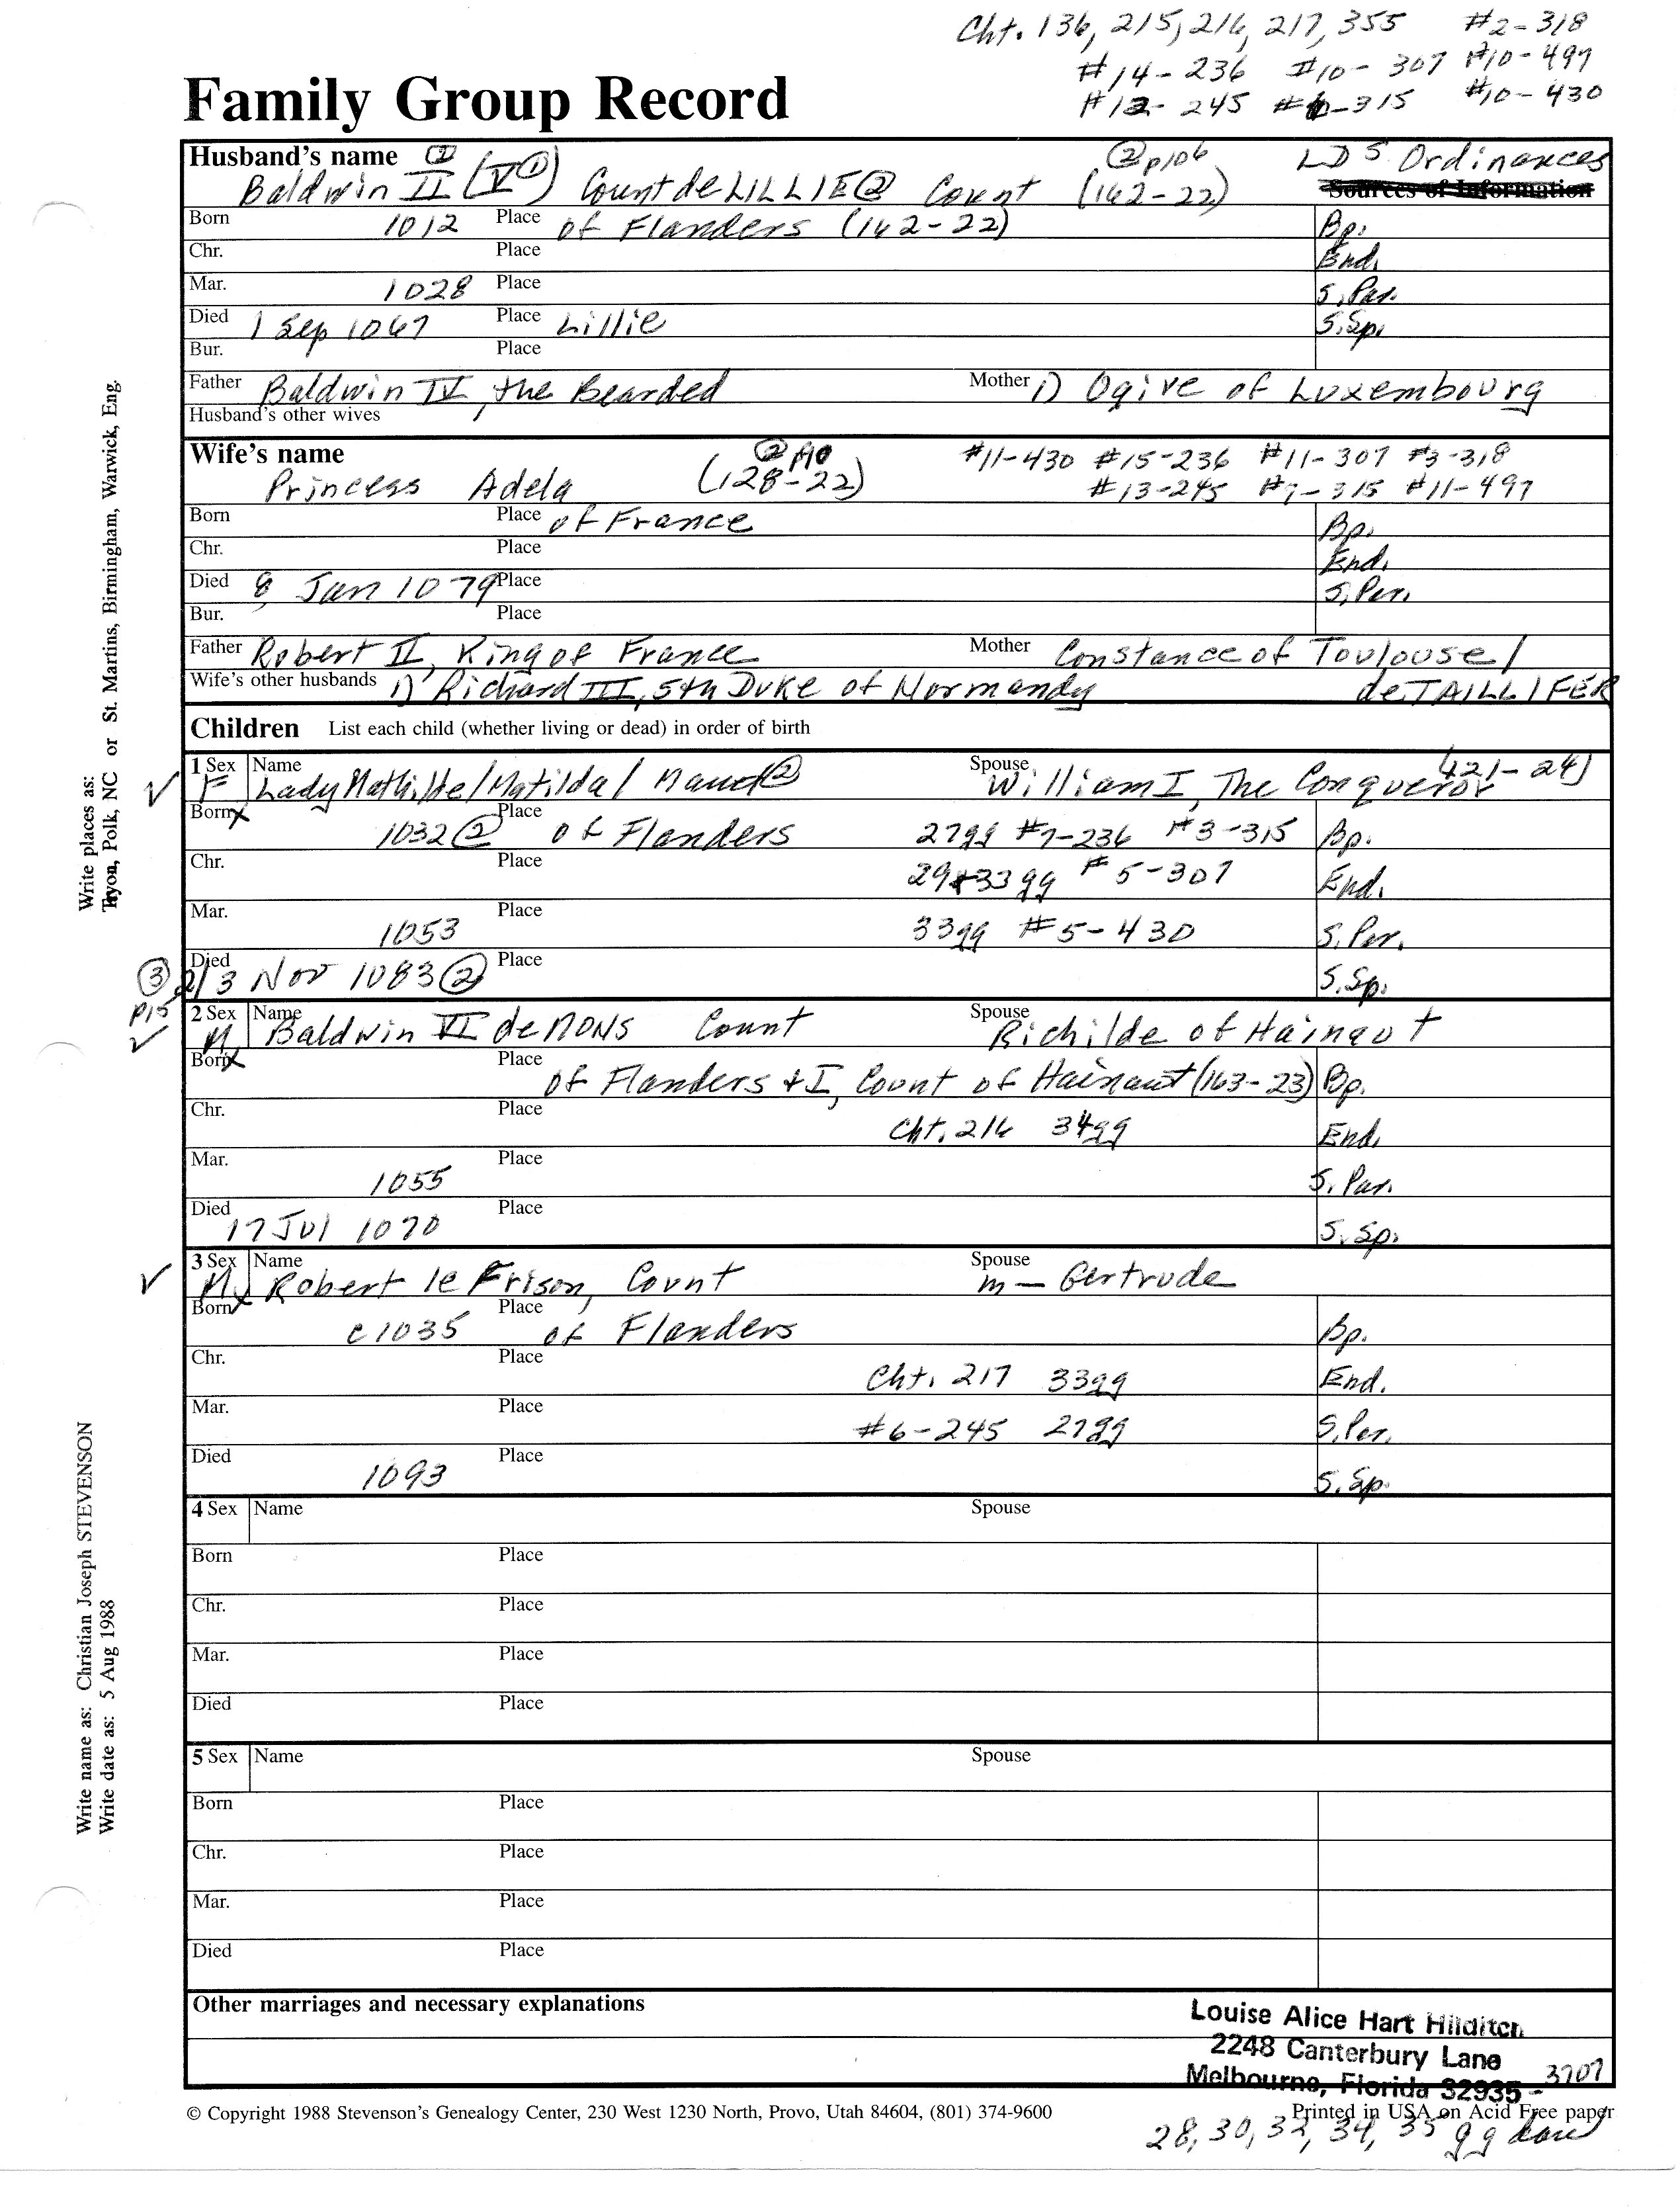 Cht. 136, 215, 216, 217, 355 #2-318
#14-236 #10-307 #10-497
#12-245 #6-315 #10-430
Family Group Record
Husband's name ② ②p106 LDS Ordinances
Baldwin II (V①) Count de LILLIE② Count (162-22) Sources of Information
Born 1012 Place of Flanders (162-22) Bp.
Chr. Place End.
Mar. 1028 Place S. Par.
Died 1 Sep 1067 Place Lillie S. Sp.
Bur. Place
Father Baldwin IV, the Bearded Mother 1) Ogive of Luxembourg
Husband's other wives
Wife's name ② p110 #11-430 #15-236 #11-307 #3-318
Princess Adela (128-22) #13-245 #7-315 #11-497
Born Place of France Bp.
Chr. Place End.
Died 8 Jan 1079 Place S. Par.
Bur. Place
Father Robert II, King of France Mother Constance of Toulouse/
Wife's other husbands 1) Richard III, 5th Duke of Normandy de TAILLIFER
Children List each child (whether living or dead) in order of birth
1 Sex Name Spouse (121-24)
F Lady Mathilde/Matilda/Maud② William I, The Conqueror
Born X 1032② Place of Flanders 27gg #7-236 #3-315 Bp.
Chr. Place 29+33gg #5-307 End.
Mar. 1053 Place 33gg #5-430 S. Par.
Died 2/3 Nov 1083② Place S. Sp.
③ p15
2 Sex Name Spouse
M Baldwin VI de MONS Count Richilde of Hainaut
Born X Place of Flanders + I, Count of Hainaut (163-23) Bp.
Chr. Place Cht. 216 34gg End.
Mar. 1055 Place S. Par.
Died 17 Jul 1070 Place S. Sp.
3 Sex Name Spouse
M Robert le Frison, Count m- Gertrude
Born X c1035 Place of Flanders Bp.
Chr. Place Cht. 217 33gg End.
Mar. Place #6-245 27gg S. Par.
Died 1093 Place S. Sp.
4 Sex Name Spouse
Born Place
Chr. Place
Mar. Place
Died Place
5 Sex Name Spouse
Born Place
Chr. Place
Mar. Place
Died Place
Other marriages and necessary explanations
Louise Alice Hart Hilditch
2248 Canterbury Lane
Melbourne, Florida 32935 - 3707
© Copyright 1988 Stevenson's Genealogy Center, 230 West 1230 North, Provo, Utah 84604, (801) 374-9600 Printed in USA on Acid Free paper
28, 30, 32, 34, 35 gg
Write places as:
Tryon, Polk, NC or St. Martins, Birmingham, Warwick, Eng.
Write name as: Christian Joseph STEVENSON
Write date as: 5 Aug 1988